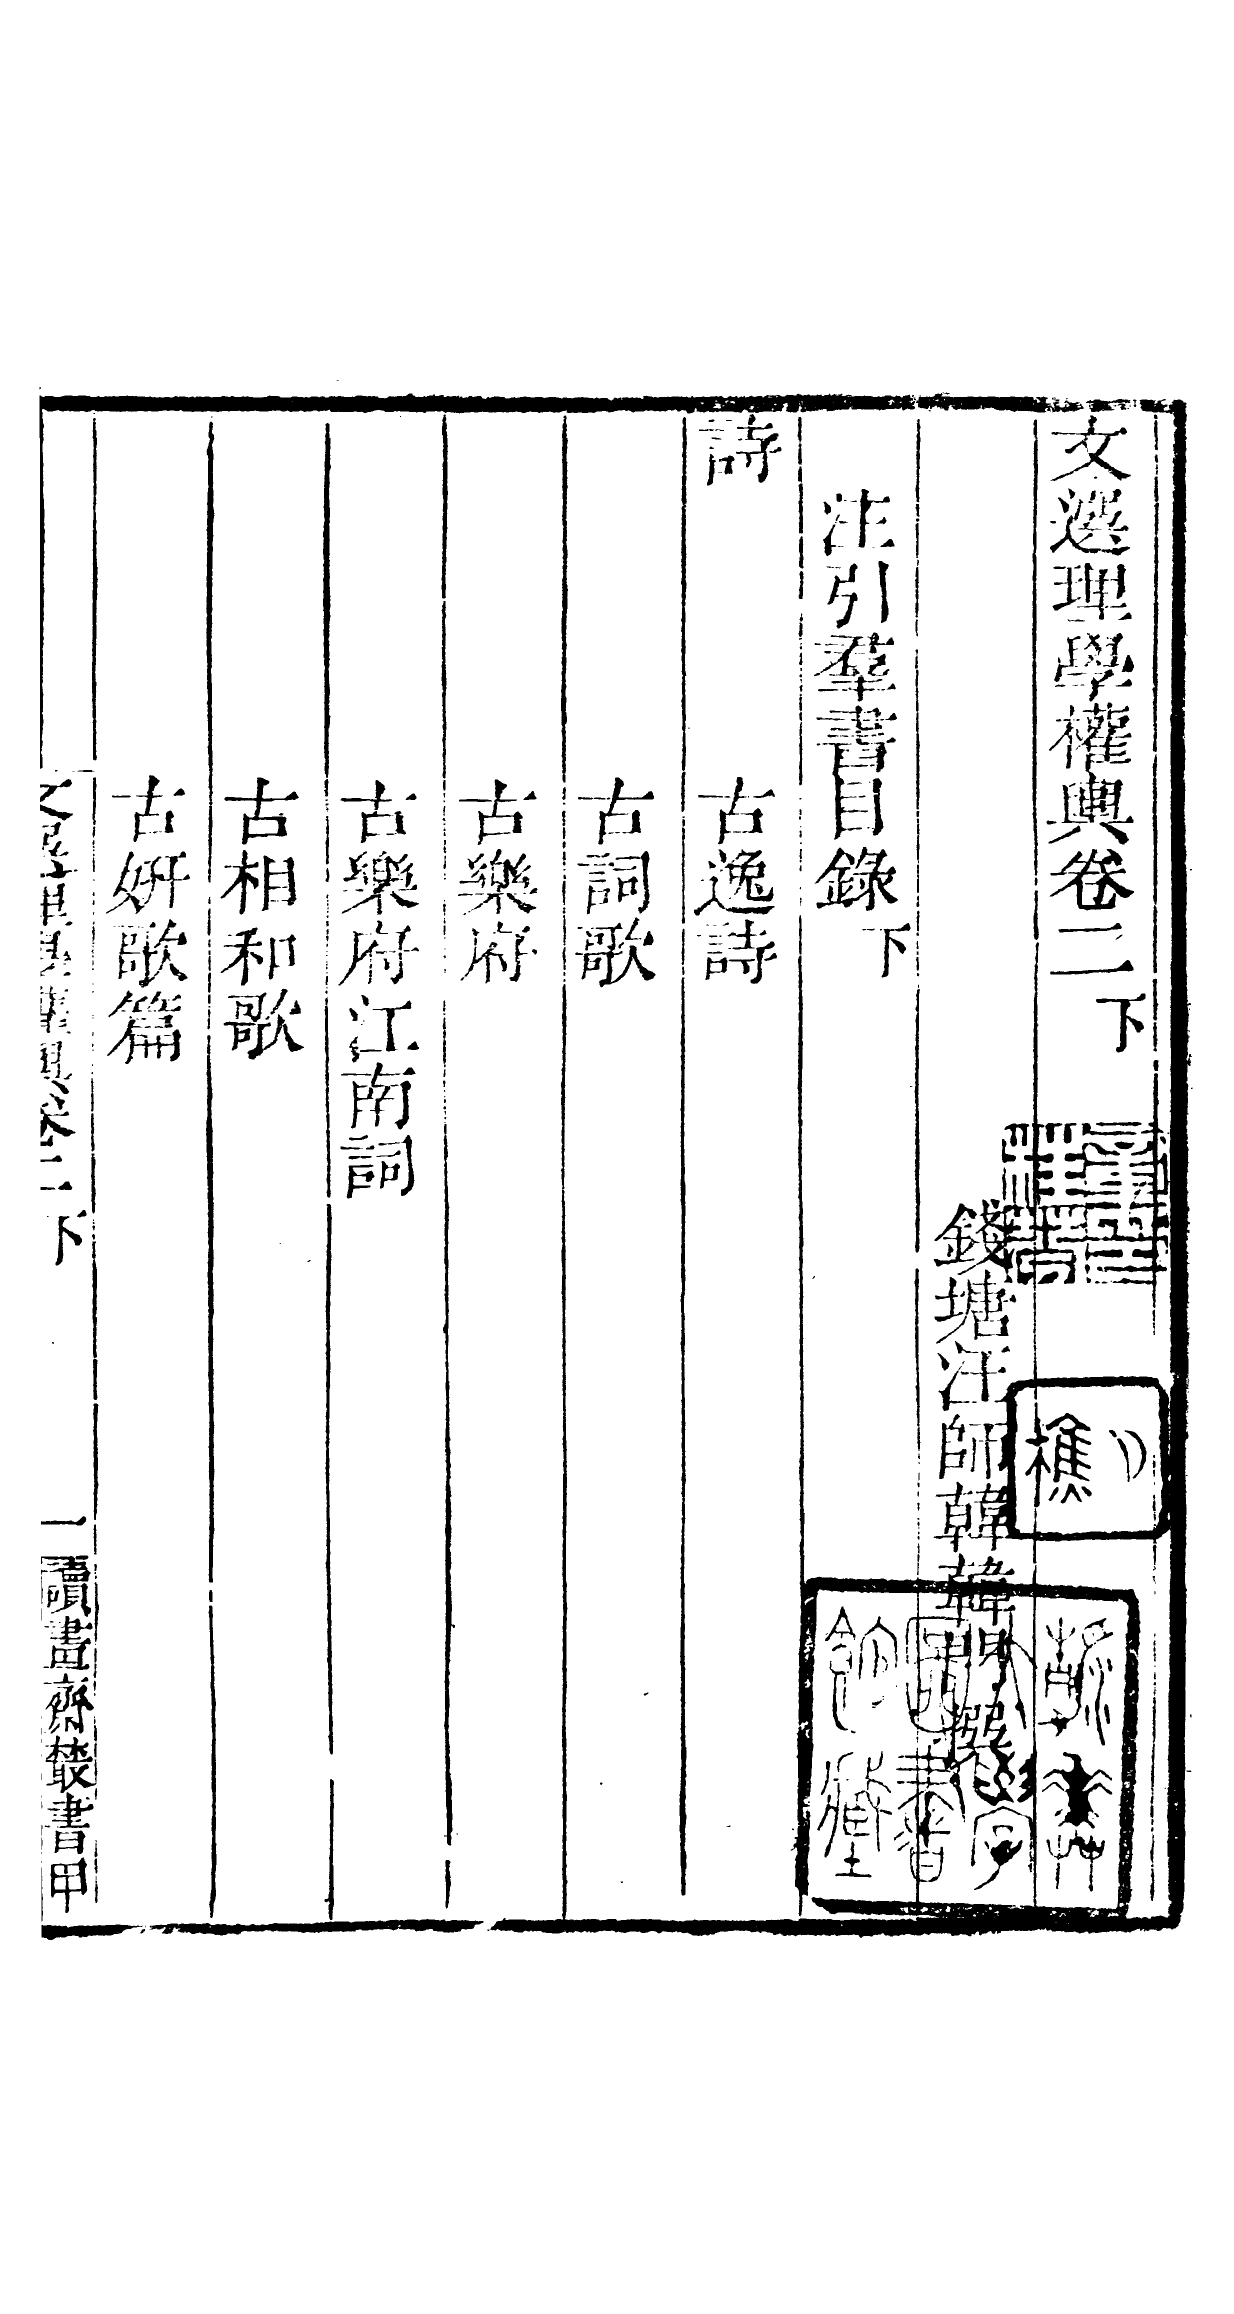 文選理學權輿卷二下
錢塘汪師韓韓門撰
注引羣書目錄下
詩
古逸詩
古詞歌
古樂府
古樂府江南詞
古相和歌
古妍歌篇
文選理學權輿卷二下
一
讀畫齋叢書甲